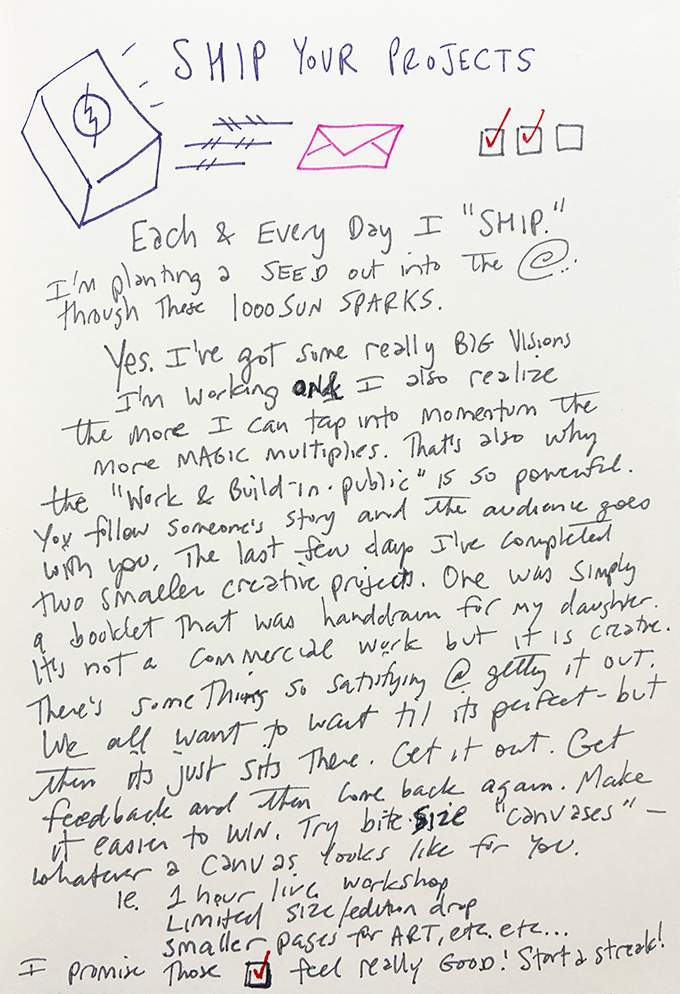 SHIP YOUR PROJECTS
Each & Every Day I "SHIP."
I'm planting a SEED out into the @..
through these 1000 SUN SPARKS.
Yes. I've got some really BIG Visions
I'm working and I also realize
the more I can tap into momentum the
more MAGIC multiplies. That's also why
the "Work & Build-in-public" is so powerful.
You follow someone's story and the audience goes
with you. The last few days I've completed
two smaller creative projects. One was simply
a booklet that was handdrawn for my daughter.
It's not a commercial work but it is creative.
There's something so satisfying @ getting it out.
We all want to wait til its perfect - but
then its just sits there. Get it out. Get
feedback and then come back again. Make
it easier to WIN. Try bite size "canvases" -
whatever a canvas looks like for you.
ie. 1 hour live workshop
Limited size/edition drop
smaller pages for ART, etc. etc...
I promise those feel really GOOD! Start a streak!